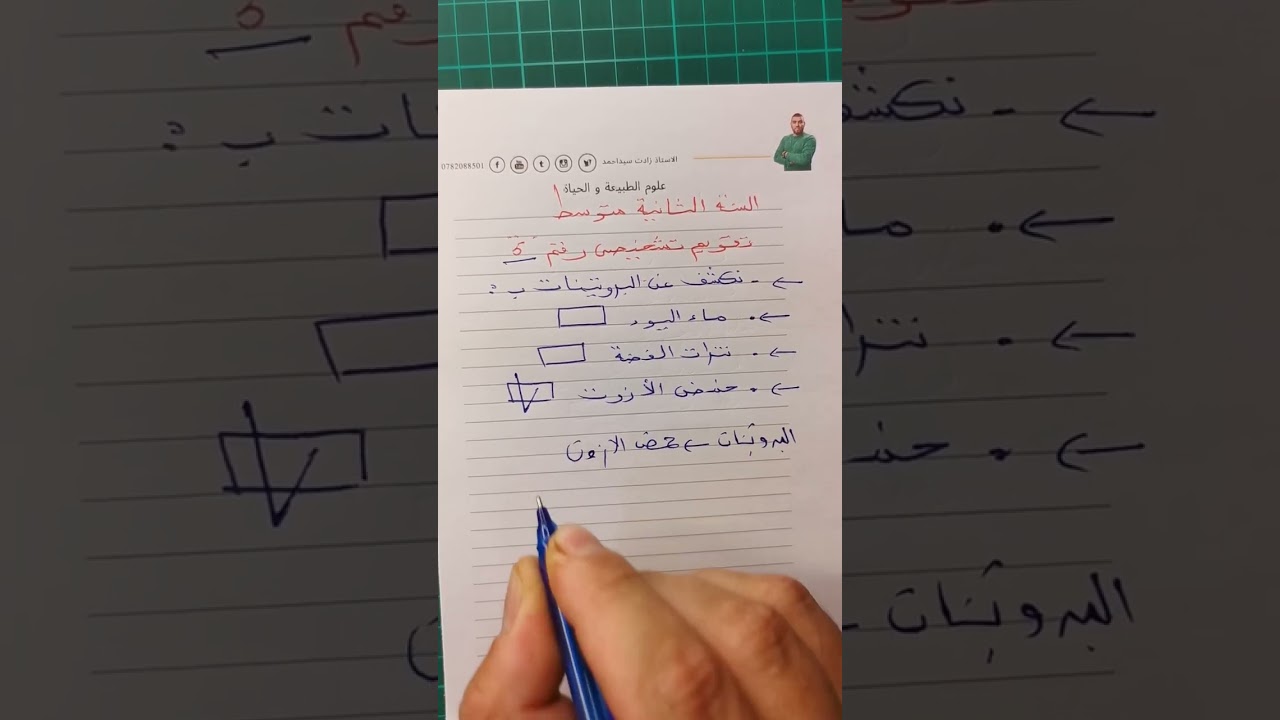 الاستاذ زادت سيداحمد 0782088501
علوم الطبيعة و الحياة
السنة الثانية متوسط
تقويم تشخيصي رقم 5
← - نكشف عن البروتينات ب :
← • ماء اليود
← • نترات الفضة
← • حمض الأزوت
البروتينات ← حمض الازوت